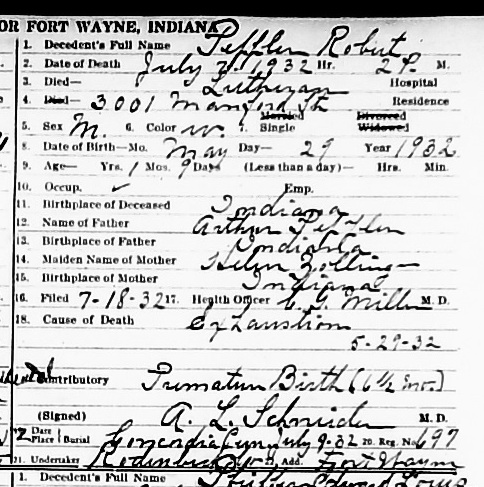 OR FORT WAYNE, INDIANA
1. Decedent's Full Name Peffler Robert
2. Date of Death July 7. 1932 Hr. 2 P. M.
3. Died— Lutheran Hospital
4. Died— 3001 Manford St Residence
Married Divorced
5. Sex M. 6. Color w. 7. Single Widowed
8. Date of Birth—Mo. May Day— 29 Year 1932
9. Age— Yrs. 1 Mos. 9 Days (Less than a day)— Hrs. Min.
10. Occup. ✓ Emp.
11. Birthplace of Deceased Indiana
12. Name of Father Arthur Peffler
13. Birthplace of Father Indiana
14. Maiden Name of Mother Helen Zollinger
15. Birthplace of Mother Indiana
16. Filed 7-18-32 17. Health Officer Miller M. D.
18. Cause of Death Exhaustion
5-29-32
Contributory Premature Birth (6 1/2 mos.)
(Signed) A. L. Schneider M. D.
Date
Place Burial Concordia Cem July 9-32 20. Reg. No. 697
21. Undertaker Add. Fort Wayne
1. Decedent's Full Name Edward Louis